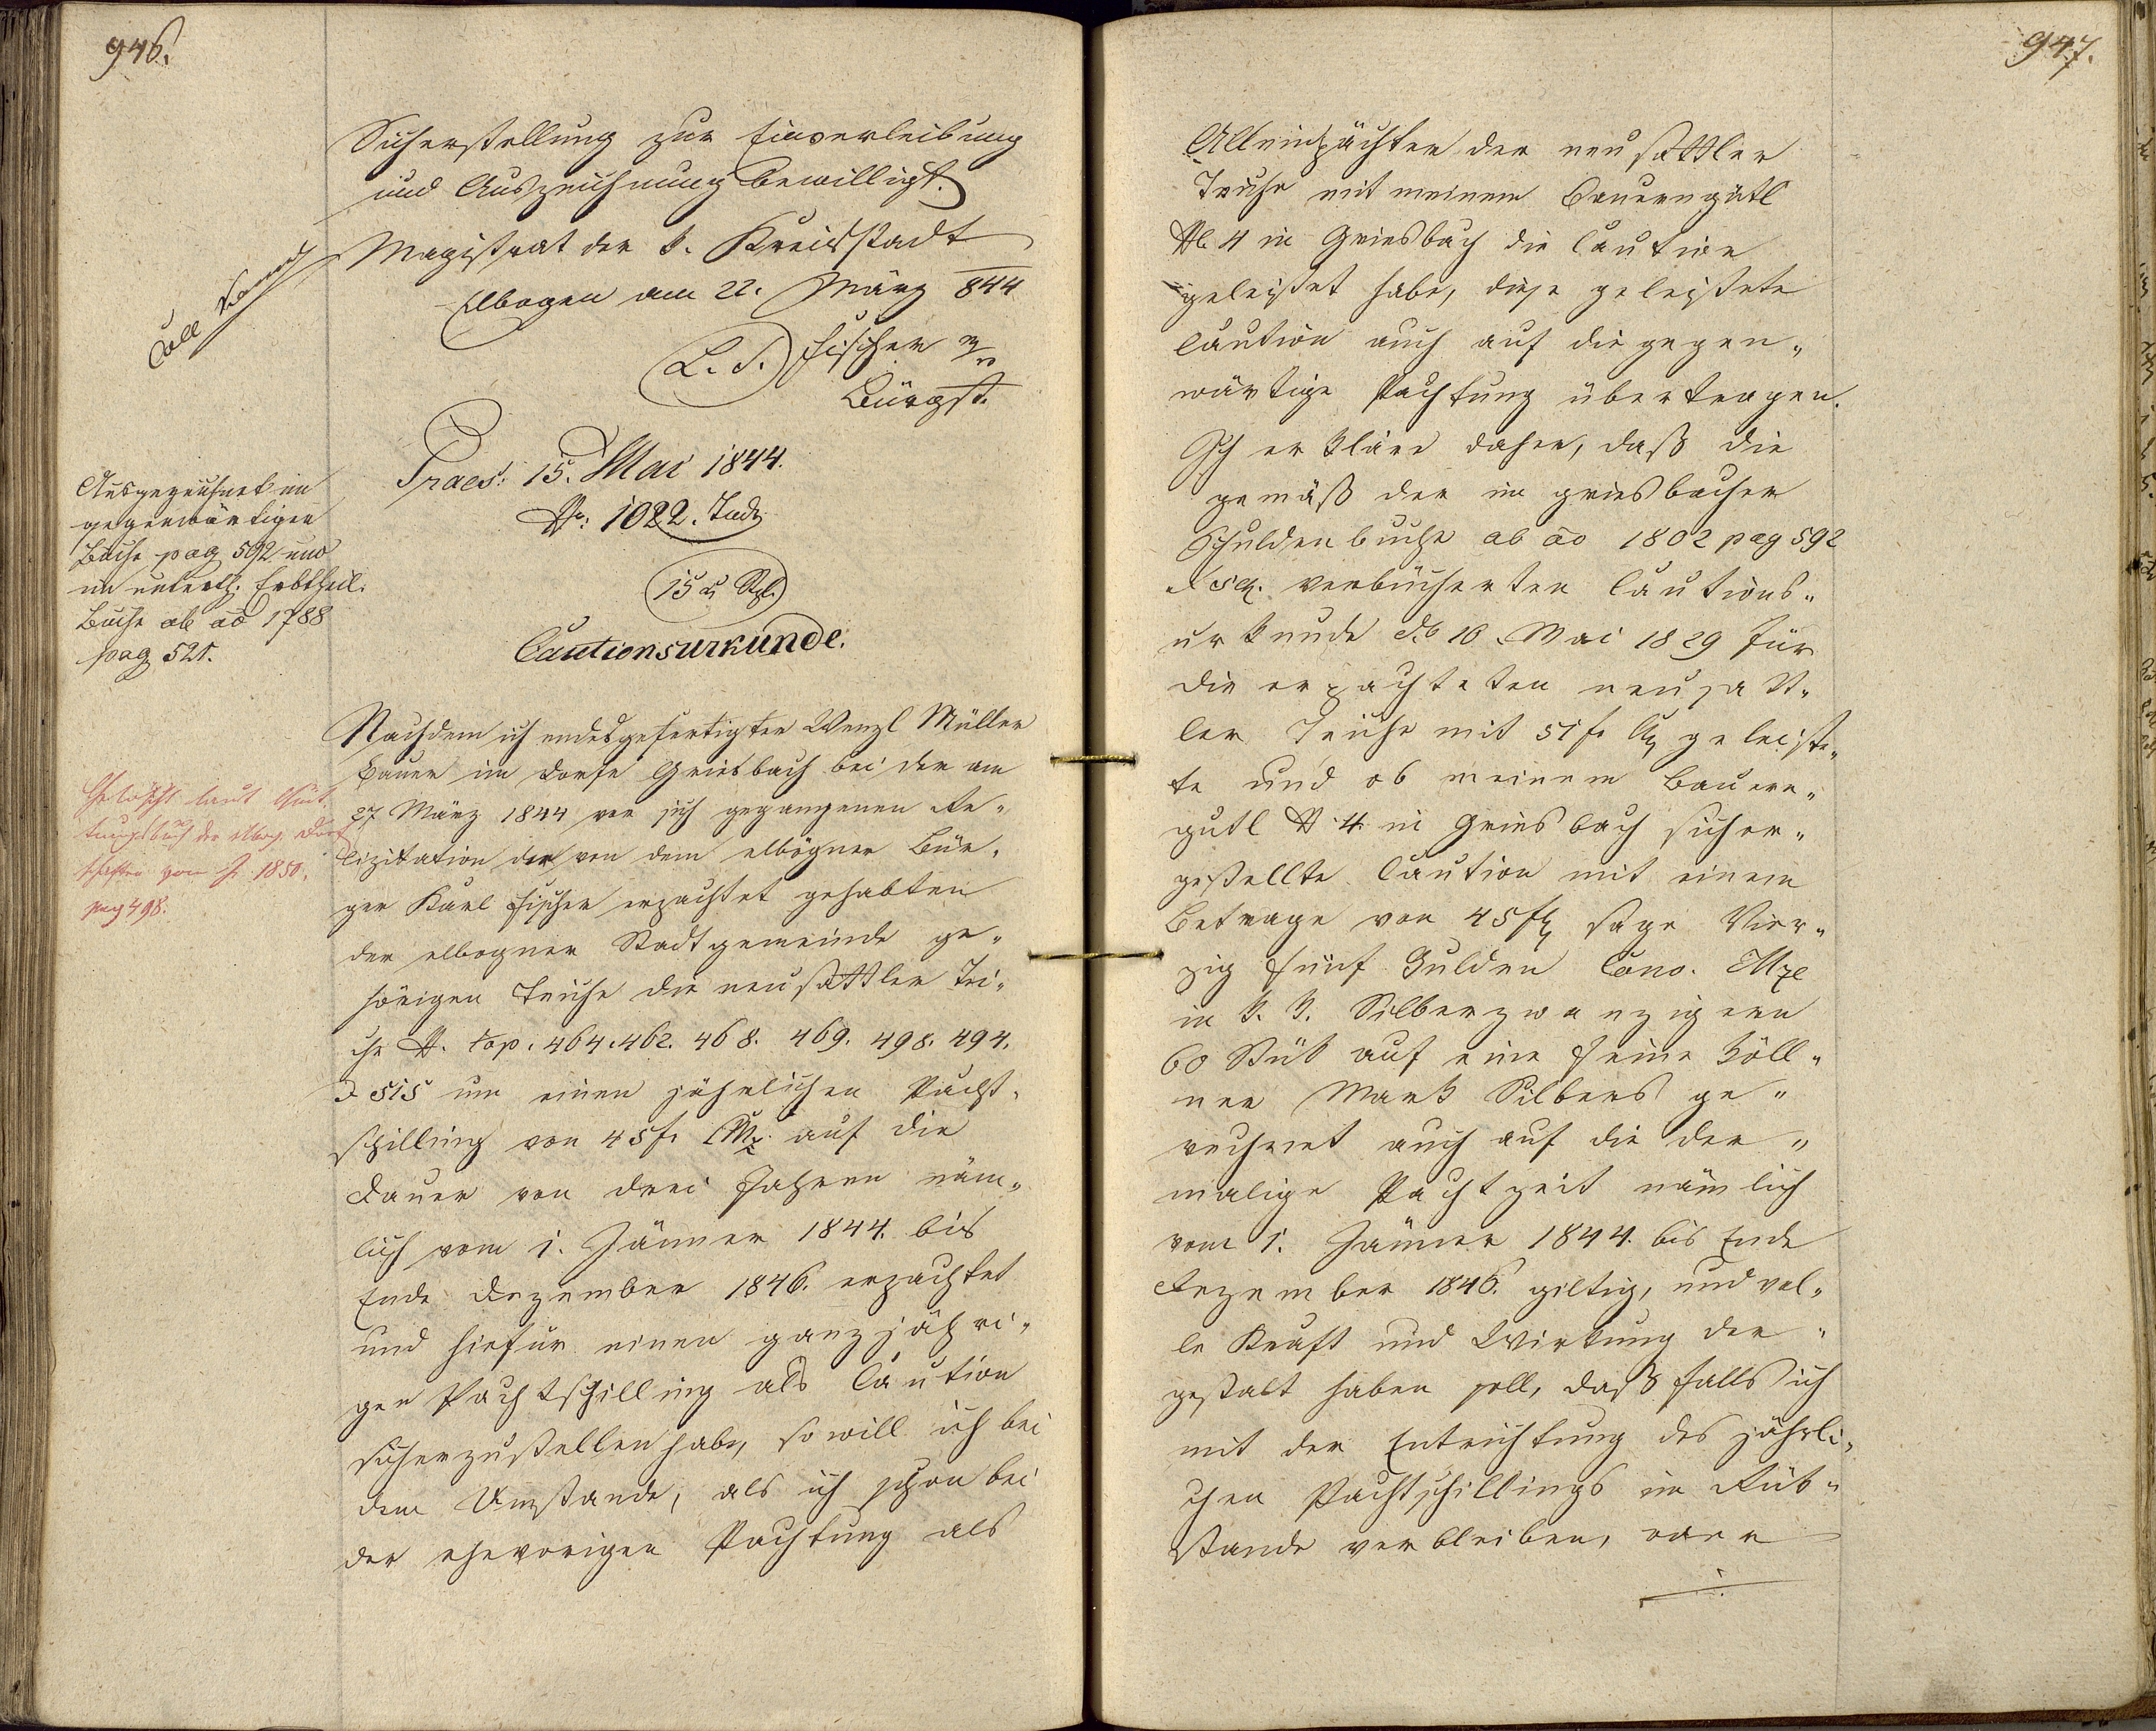 946.
Sicherstellung zur Einverleibung
und Auszeichnung bewilligt.
Magistrat der k. Kreisstadt
Elbogen am 22. März 844
L. S. Fischer m/p
Bürgst.
Coll
Praes: 15. Mai 1844.
N: 1022. Jud.
Ausgezeichnet im
gegenwärtigen
Buche pag 592 und
im unterth. Erbtheil.
Buche ab ao 1788
pag 521.
15 x Stpl.
Cautionsurkunde.
Nachdem ich endesgefertigter Wenzl Müller
Bauer im Dorfe Griesbach bei der am
27 März 1844 vor sich gegangenen Re„
lizitation der von dem elbögner Bür„
ger Karl Fischer erpachtet gehabten
der elbogner Stadtgemeinde ge„
hörigen Teuche die neusattler Tei„
che N. top. 464. 462. 468. 469. 498. 494.
& 515 um einen jährlichen Pacht„
schilling von 45 f. CMz. auf die
Dauer von drei Jahren näm„
lich vom 1. Jänner 1844. bis
Ende Dezember 1846. erpachtet
und hiefür einen ganzjähri„
gen Pachtschilling als Caution
sicherzustellen habe, so will ich bei
dem Umstande, als ich schon bei
der ehevorigen Pachtung als
Gelöscht laut Quit„
tungsbuch der Elbog. Dorf
schaften vom J. 1850.
pag 498.
947.
Alleinpächter der neusattler
Teuche mit meinem Bauerngütl
N. 4 in Griesbach die Caution
geleistet habe, diese geleistete
Caution auch auf die gegen„
wärtige Pachtung übertragen.
Ich erkläre daher, daß die
gemäß der im griesbacher
Schuldenbuche ab ao 1802 pag 592
& sq. verbücherten Cautions„
urkunde do 10. Mai 1829 für
die erpachteten neusatt„
ler Teuche mit 51 f. geleiste„
te und ob meinem Bauern„
gutl N. 4. in Griesbach sicher„
gestellte Caution mit einem
Betrage von 45 f sage Vier„
zig fünf Gulden Conv. Mze
in k. k. Silberzwanzigern
60 Stük auf eine feine köll„
ner Mark Silbers ge„
rechnet auch auf die der„
malige Pachtzeit nämlich
vom 1. Jänner 1844. bis Ende
Dezember 1846. giltig, und vol„
le Kraft und Wirkung der„
gestalt haben soll, daß falls ich
mit der Entrichtung des jährli„
chen Pachtschillings im Rük„
stande verbleiben, oder